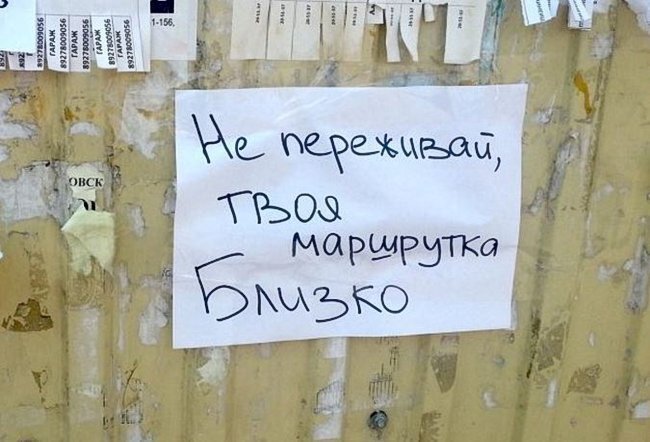 89278009056
ГАРАЖ
89278009056
ГАРАЖ
89278009056
ГАРАЖ
89278009056
ГАРАЖ
1-156,
Не переживай,
твоя
маршрутка
Близко
ОВСК